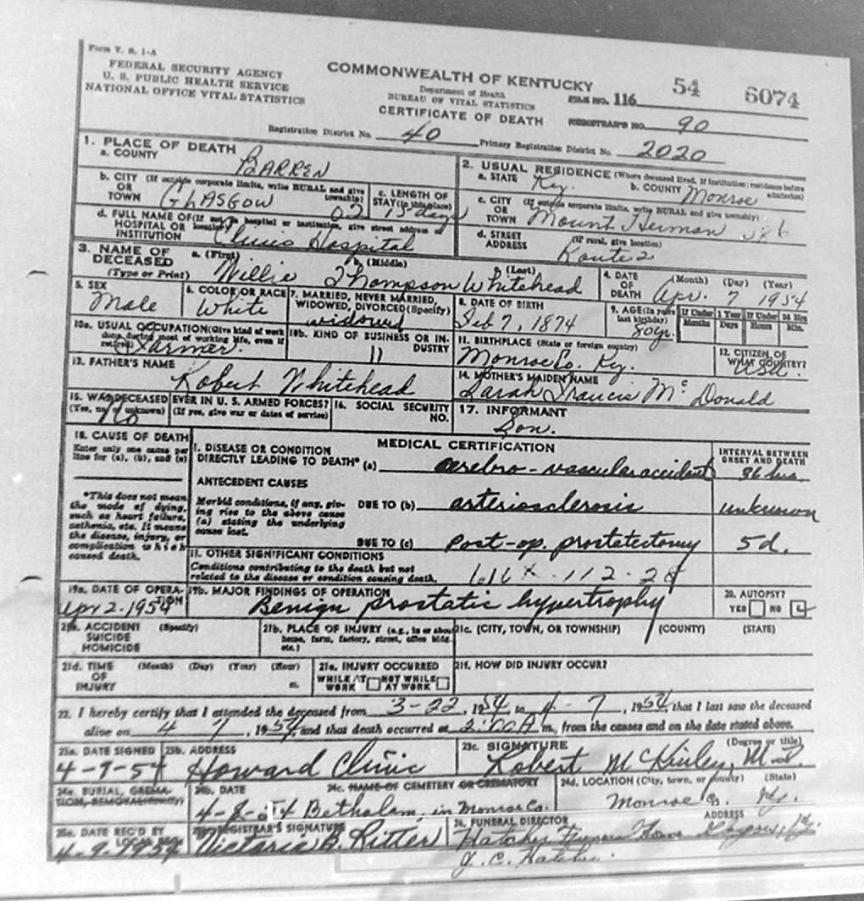 Form V. S. 1-A
FEDERAL SECURITY AGENCY
U. S. PUBLIC HEALTH SERVICE
NATIONAL OFFICE VITAL STATISTICS
COMMONWEALTH OF KENTUCKY
Department of Health
BUREAU OF VITAL STATISTICS
CERTIFICATE OF DEATH
FILE NO. 116 54 6074
REGISTRAR'S NO. 90
Registration District No. 40 Primary Registration District No. 2020
1. PLACE OF DEATH
a. COUNTY BARREN
b. CITY (If outside corporate limits, write RURAL and give township)
OR TOWN GLASGOW
c. LENGTH OF STAY (in this place) 15 days
d. FULL NAME OF (If not in hospital or institution, give street address or location)
HOSPITAL OR INSTITUTION Clinic Hospital
2. USUAL RESIDENCE (Where deceased lived. If institution: residence before admission)
a. STATE Ky. b. COUNTY Monroe
c. CITY (If outside corporate limits, write RURAL and give township)
OR TOWN Mount Herman
d. STREET ADDRESS (If rural, give location)
Route 2
3. NAME OF DECEASED (Type or Print)
a. (First) b. (Middle) c. (Last)
Willie Thompson Whitehead
4. DATE OF DEATH (Month) (Day) (Year)
Apr. 7 1954
5. SEX Male
6. COLOR OR RACE White
7. MARRIED, NEVER MARRIED, WIDOWED, DIVORCED (Specify) widowed
8. DATE OF BIRTH Feb 7, 1874
9. AGE (In years last birthday) 80yr.
If Under 1 Year Months Days If Under 24 Hrs Hours Min.
10a. USUAL OCCUPATION (Give kind of work done during most of working life, even if retired) Farmer
10b. KIND OF BUSINESS OR INDUSTRY 11
11. BIRTHPLACE (State or foreign country) Monroe Co. Ky.
12. CITIZEN OF WHAT COUNTRY? USA.
13. FATHER'S NAME Robert Whitehead
14. MOTHER'S MAIDEN NAME Sarah Francis McDonald
15. WAS DECEASED EVER IN U. S. ARMED FORCES?
(Yes, no, or unknown) (If yes, give war or dates of service) No
16. SOCIAL SECURITY NO.
17. INFORMANT Son.
18. CAUSE OF DEATH
Enter only one cause per line for (a), (b), and (c)
*This does not mean the mode of dying, such as heart failure, asthenia, etc. It means the disease, injury, or complication which caused death.
MEDICAL CERTIFICATION
INTERVAL BETWEEN ONSET AND DEATH
I. DISEASE OR CONDITION DIRECTLY LEADING TO DEATH* (a) cerebro-vascular accident 36 hrs.
ANTECEDENT CAUSES
Morbid conditions, if any, giving rise to the above cause (a) stating the underlying cause last.
DUE TO (b) arteriosclerosis unknown
DUE TO (c) Post-op. prostatectomy 5d.
II. OTHER SIGNIFICANT CONDITIONS
Conditions contributing to the death but not related to the disease or condition causing death. 616X-112-28
19a. DATE OF OPERATION Apr 2. 1954
19b. MAJOR FINDINGS OF OPERATION Benign prostatic hypertrophy
20. AUTOPSY? YES NO
21a. ACCIDENT SUICIDE HOMICIDE (Specify)
21b. PLACE OF INJURY (e.g., in or about home, farm, factory, street, office bldg. etc.)
21c. (CITY, TOWN, OR TOWNSHIP) (COUNTY) (STATE)
21d. TIME OF INJURY (Month) (Day) (Year) (Hour) m.
21e. INJURY OCCURRED WHILE AT WORK NOT WHILE AT WORK
21f. HOW DID INJURY OCCUR?
22. I hereby certify that I attended the deceased from 3-22, 1954 to 4-7, 1954, that I last saw the deceased
alive on 4 7, 1954, and that death occurred at 2:00 A m., from the causes and on the date stated above.
23a. DATE SIGNED 4-7-54
23b. ADDRESS Howard Clinic
23c. SIGNATURE (Degree or title) Robert McKinley, M.D.
24a. BURIAL, CREMATION, REMOVAL (Specify)
24b. DATE 4-8-54
24c. NAME OF CEMETERY OR CREMATORY Bethalem, in Monroe Co.
24d. LOCATION (City, town, or county) (State) Monroe Co. Ky.
25a. DATE REC'D BY LOCAL REG. 4-9-1954
REGISTRAR'S SIGNATURE Victoria B. Ritter
26. FUNERAL DIRECTOR ADDRESS
Hatcher Funeral Home Glasgow, Ky.
J. C. Hatcher.